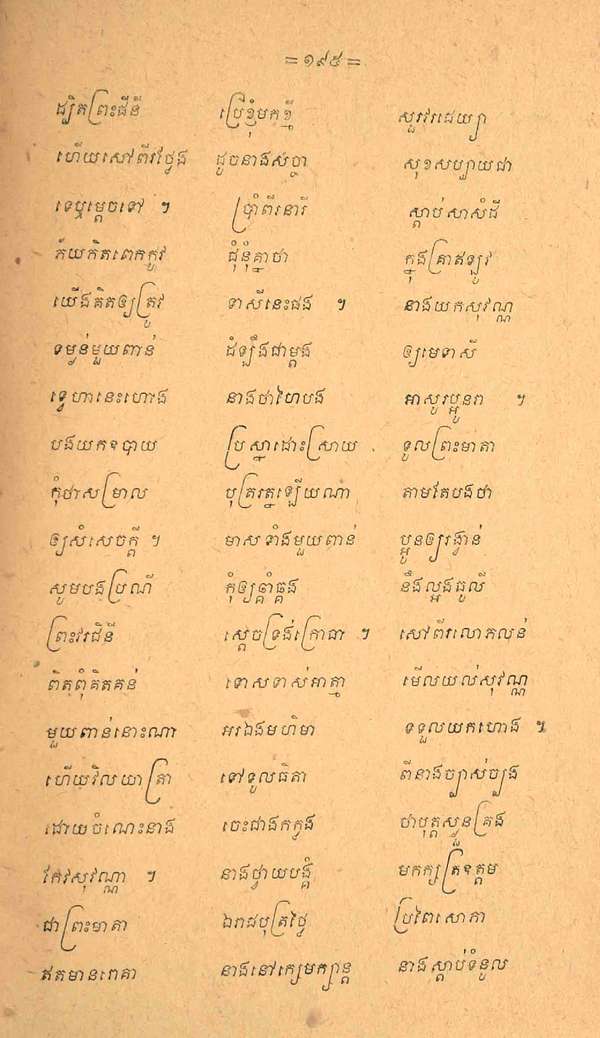 = ១៩៥ =
ដ្បិតព្រះជីនី ប្រើខ្ញុំមកខ្មី សួរវរជេយ្យា
ហើយសៅពីរថ្វែង ដូចនាងសច្ចា សុខសប្បាយជា
ទេឬម្ដេចទៅ ។ ប្រាំពីរនារី ស្ដាប់សាសំដី
ភ័យកិតពេកក្កូវ ជុំនុំគ្នាថា ក្នុងគ្រាឥឡូវ
យើងគិតឲ្យត្រូវ ទាសីនេះផង ។ នាងយកសុវណ្ណ
ទម្ងន់មួយពាន់ ដំឡឹងជាម្ដង ឲ្យមេទាសី
ទ្វេហានេះហោង នាងថាហៃបង អាសូរប្អូនរា ។
បងយកឧបាយ ប្រស្នាដោះស្រាយ ទូលព្រះមាតា
កុំថាសម្រាល បុត្ររត្នឡើយណា តាមតែបងថា
ឲ្យសំសេចក្ដី ។ មាសទាំងមួយពាន់ ប្អូនឲ្យរង្វាន់
សូមបងប្រណី កុំឲ្យឆ្គាំឆ្គង នឹងល្អងធូលី
ព្រះវរជិនី ស្ដេចទ្រង់ក្រោធា ។ សៅពីរលោភលុន់
ពិតពុំគិតគន់ ទោសទាស់អាត្មា មើលយល់សុវណ្ណ
មួយពាន់នោះណា អរឯងមហិមា ទទួលយកហោង ៕
ហើយវិលយាត្រា ទៅទូលធិតា ពីនាងច្បាស់ច្បង
ដោយចំណេះនាង ចេះជាងកកួង ថាបុត្តស្ងួនគ្រង
កែវសុវណ្ណា ។ នាងថ្វាយបង្គំ មកក្សត្រឧត្ដម
ជាព្រះមាតា ឯរាជបុត្រថ្លៃ ប្រពៃសោភា
ឥតមានរោគា នាងនៅក្សេមក្សាន្ត នាងស្ដាប់ទំនូល